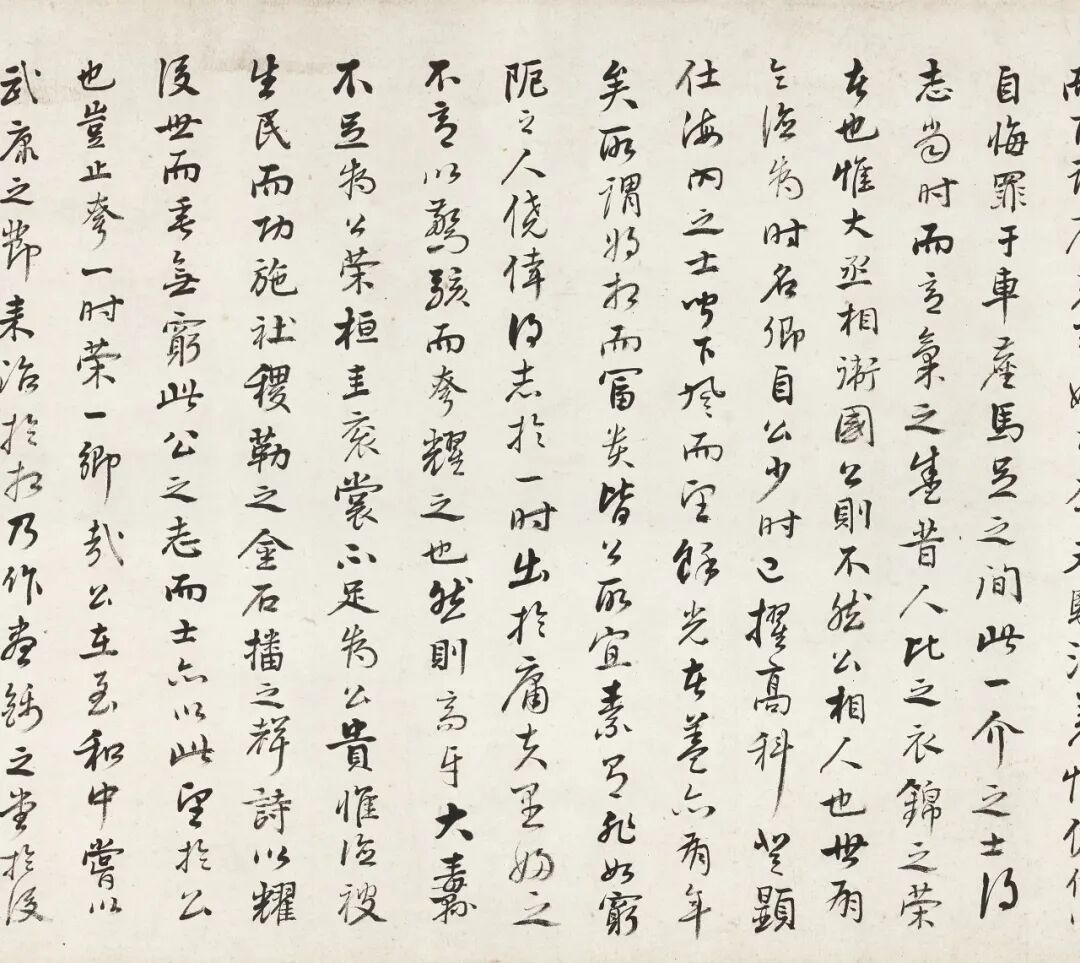 自悔罪于車塵馬足之间此一介之士得
志當时而意氣之盛昔人比之衣錦之荣
者也惟大丞相衛國公則不然公相人也世有
令德為时名卿自公少时已擢高科登顯
仕海内之士聞下風而望餘光者蓋亦有年
矣所謂將相而富貴皆公所宜素有非如窮
阨之人僥倖得志於一时出於庸夫里婦之
不意以驚駭而夸耀之也然則高牙大纛
不足為公荣桓圭衮裳不足為公貴惟德被
生民而功施社稷勒之金石播之聲詩以耀
後世而垂無窮此公之志而士亦以此望於公
也豈止夸一时荣一鄉哉公在至和中嘗以
武康之節来治於相乃作晝錦之堂於後